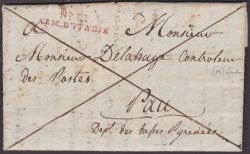 No. 
ARM. D'ITALIE
A Monsieur
Monsieur Delassage Controleur
des Postes
Pau
Dept. des basses Pyrenées